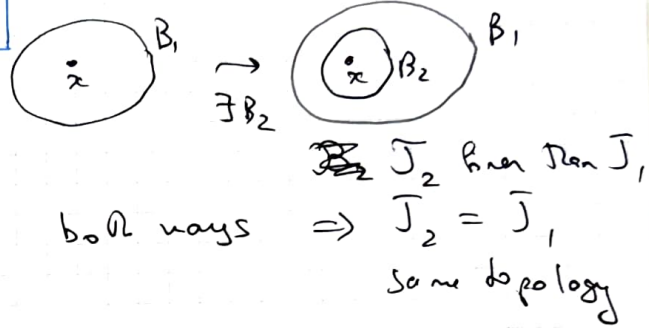 x B₁ → ∃B₂ x B₂ B₁
J₂ finer than J₁
both ways ⇒ J₂ = J₁
same topology